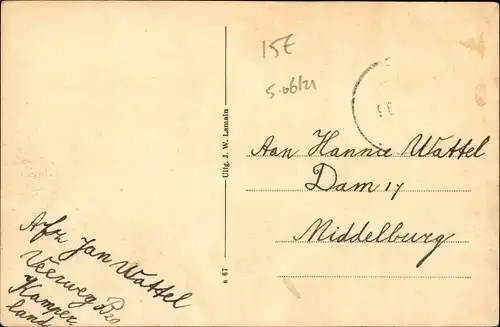 15E
5-06/21
Aan Hannie Wattel
Dam 17
Middelburg
Uitg. J. W. Lamain
s 67
Afz Jan Wattel
Veerweg
Kamper
land